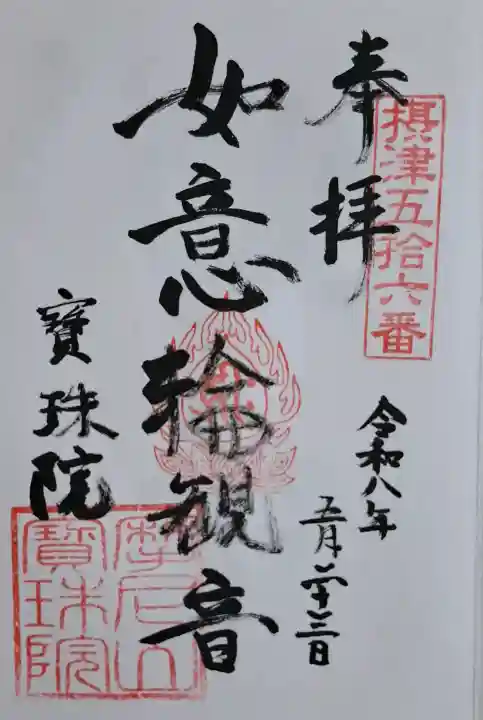 奉拝
摂津五拾六番
令和八年
五月二十三日
如意輪観音
寳珠院
摩尼山
寳珠院